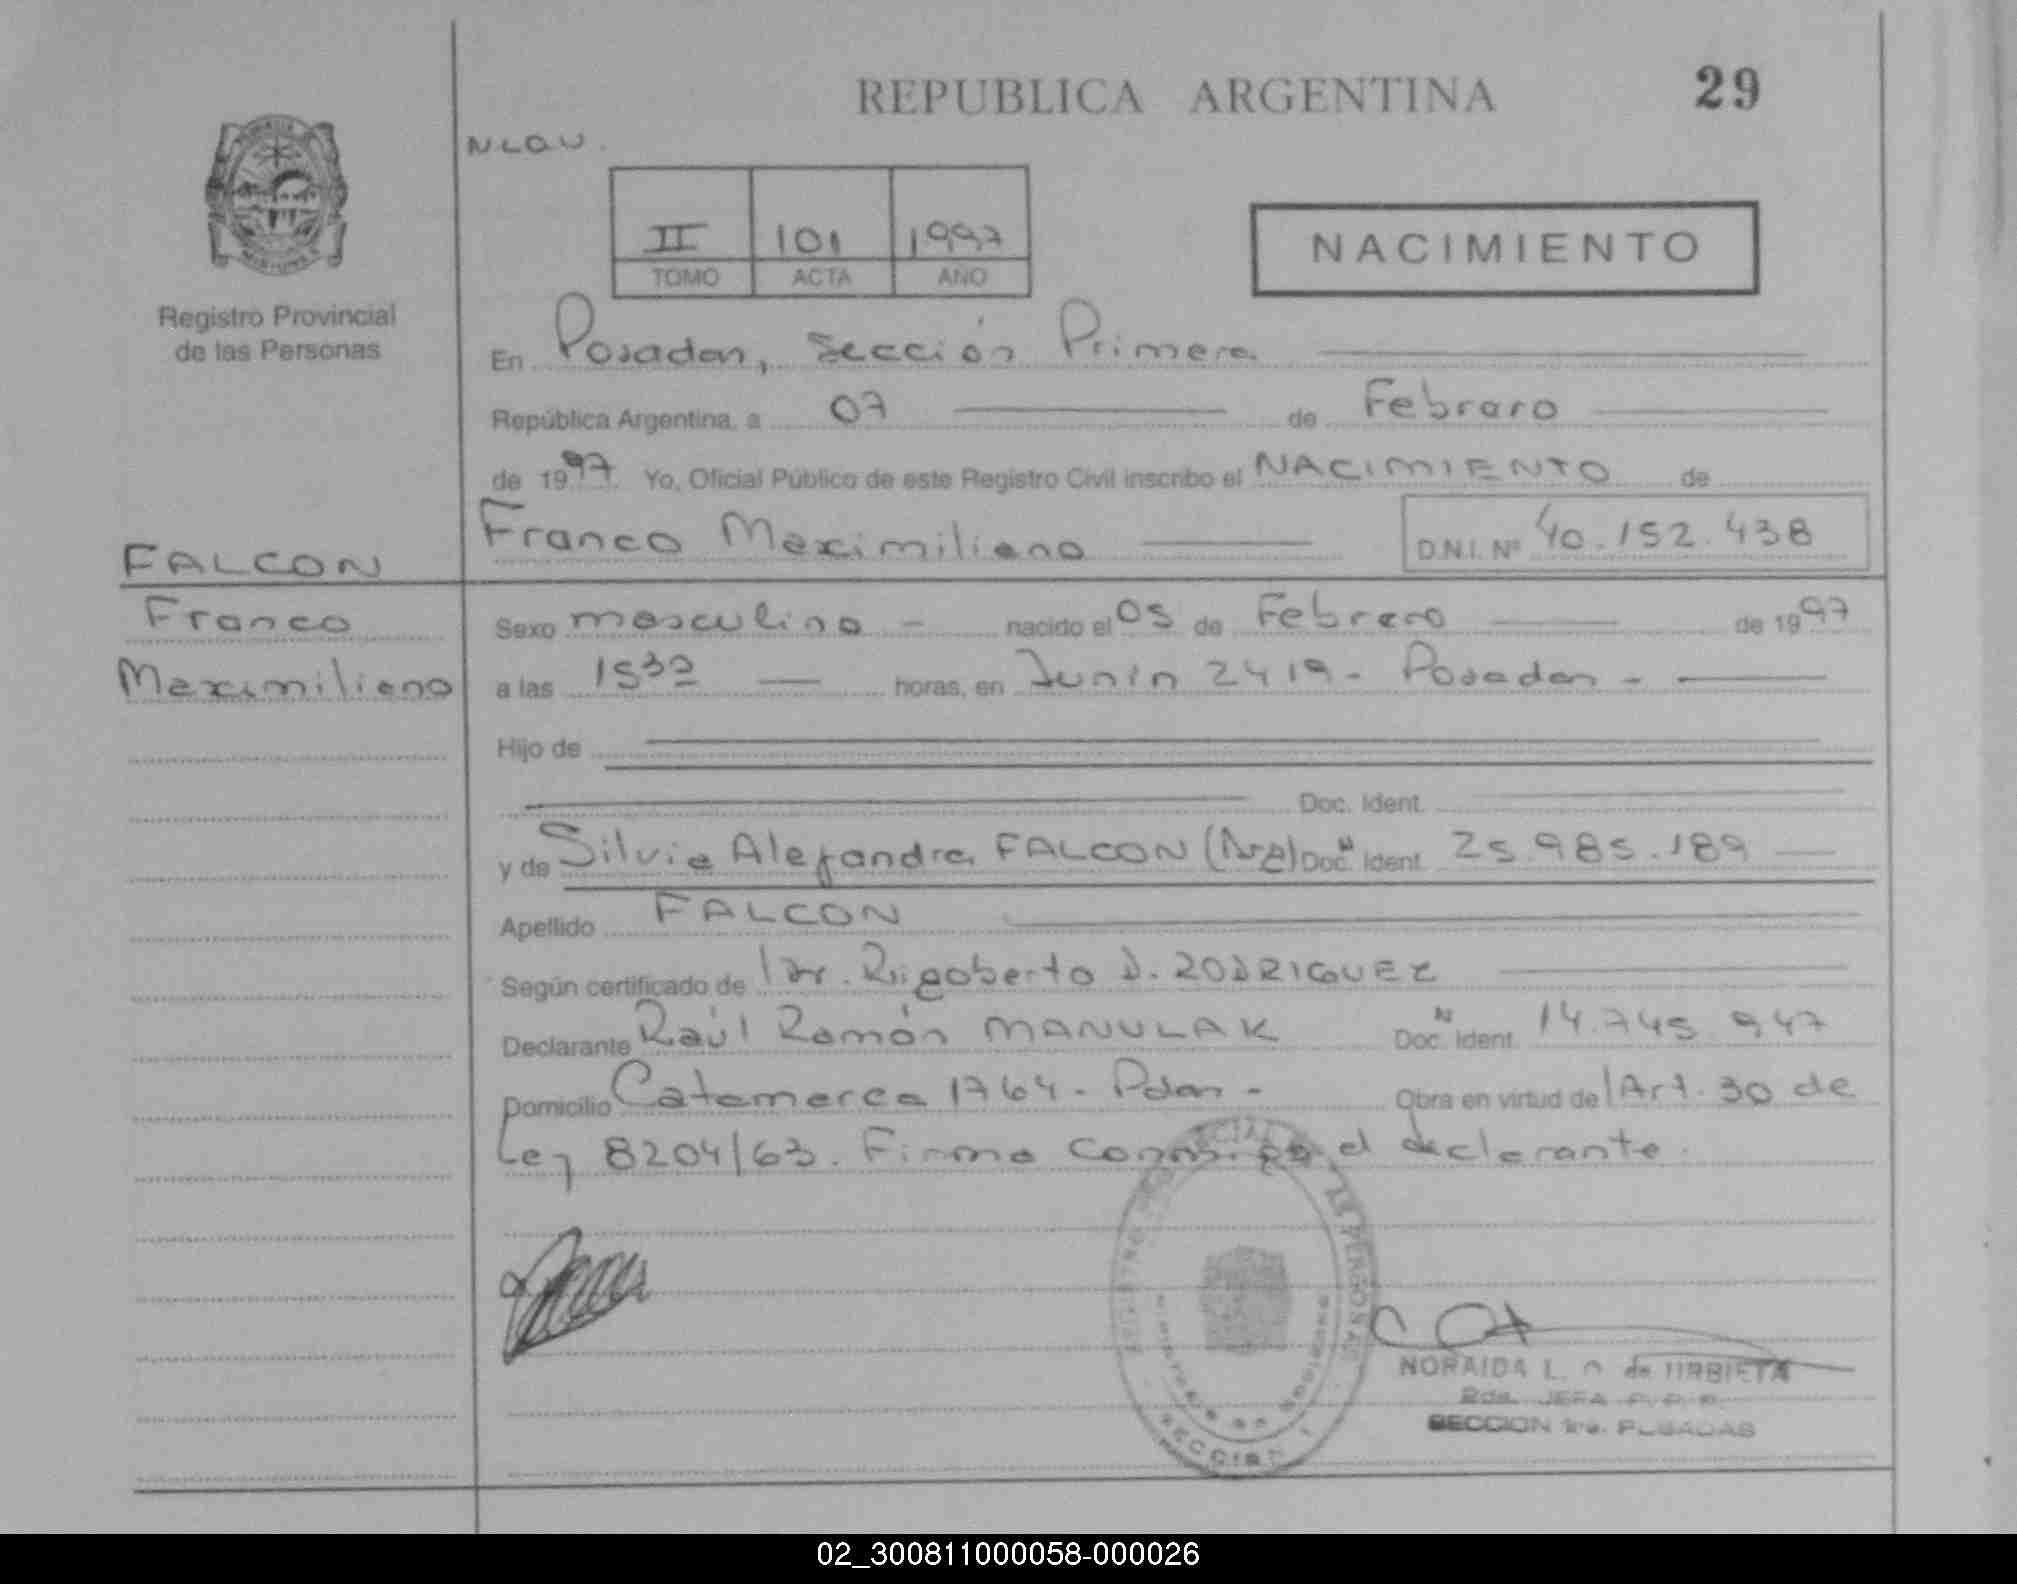 REPUBLICA ARGENTINA
29
NLOU.
II 101 1997
TOMO ACTA AÑO
NACIMIENTO
Registro Provincial
de las Personas
En Posadas, Sección Primera
República Argentina, a 07 de Febrero
de 1997 Yo, Oficial Público de este Registro Civil inscribo el NACIMIENTO de
Franco Maximiliano D.N.I. Nº 40.152.438
FALCON
Franco
Maximiliano
Sexo masculino - nacido el 05 de Febrero de 1997
a las 1532 horas, en Junín 2419 - Posadas -
Hijo de
Doc. Ident.
y de Silvia Alejandra FALCON (Arg) Doc. Ident. 25.985.189
Apellido FALCON
Según certificado de Dr. Rigoberto D. RODRIGUEZ
Declarante Raúl Ramón MANULAK Doc. Ident. 14.745.947
Domicilio Catamarca 1764 - Pdas - Obra en virtud de Art. 30 de
Ley 8204/63. Firma conmigo el declarante.
NORAIDA L. de URBIETA
2da. JEFA
SECCION 1ra. POSADAS
SECCION 1
02_300811000058-000026